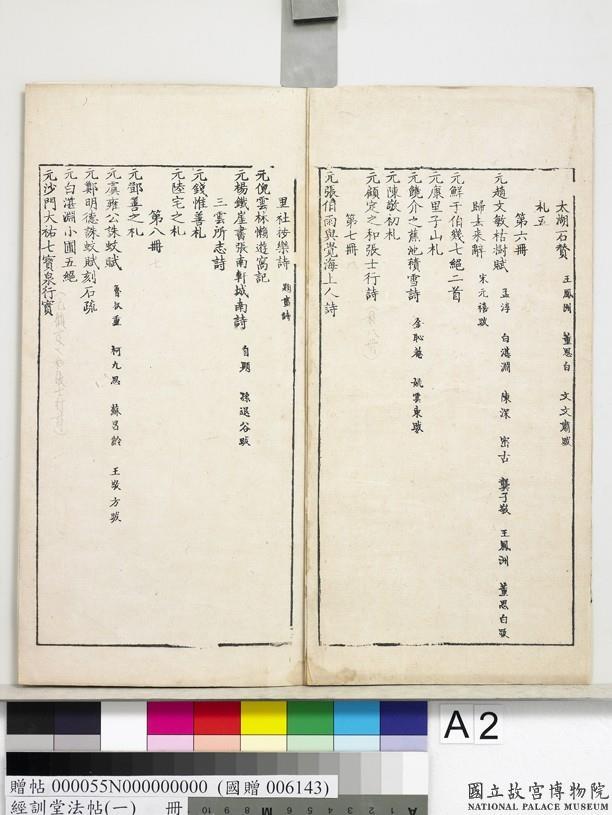 太湖石贊 王鳳洲 董思白 文文肅跋
札五
第六冊
元趙文敏枯樹賦 孟淳 白湛淵 陳深 密古 龔子敬 王鳳洲 董思白跋
歸去來辭 宋元禧跋
元鮮于伯幾七絕二首
元康里子山札
元饒介之蕉池積雪詩 金恥菴 姚雲東跋
元陳敬初札
元顧定之和張士行詩
第七冊
元張伯雨與覺海上人詩
里社
樂詩
元倪雲林懶遊窩記
元楊鐵崖書張南軒城南詩 自題 孫退谷跋
三雲所志詩
元錢惟善札
元陸宅之札
第八冊
元鄧善之札
元虞雍公誅蚊賦 魯叔重 柯九思 蘇昌齡 王 方跋
元鄭明德誅蚊賦刻石疏
元白湛淵小圃五絕
元沙門大祐七寶泉行實
A2
贈帖 000055N000000000 (國贈 006143)
經訓堂法帖(一) 冊
國立故宮博物院
NATIONAL PALACE MUSEUM